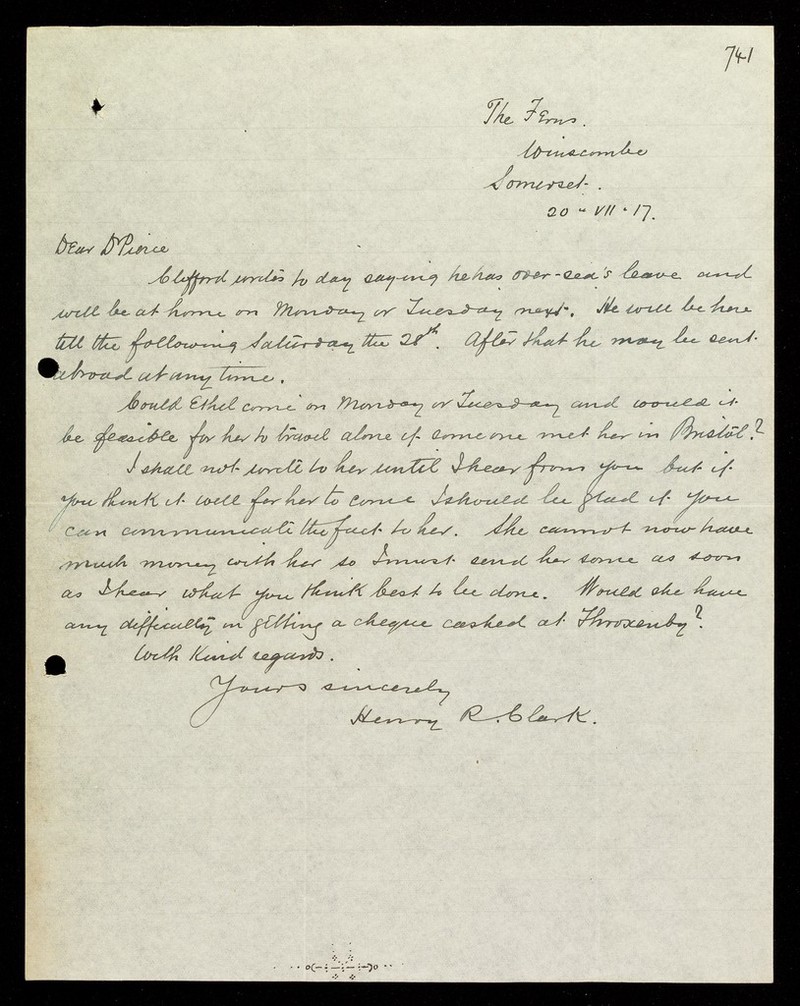 741
The Ferns.
Winscombe
Somerset.
20 - VII - 17.
Dear Dr Pierce
Clifford writes to day saying he has over-sea's leave and
will be at home on Monday or Tuesday next. He will be here
till the following Saturday the 28th. After that he may be sent
abroad at any time.
Could Ethel come on Monday or Tuesday and would it
be feasible for her to travel alone if someone met her in Bristol?
I shall not write to her until I hear from you but if
you think it well for her to come I should be glad if you
can communicate the fact to her. She cannot now have
much money with her so I must send her some as soon
as I hear what you think best to be done. Would she have
any difficulty in getting a cheque cashed at Throxenby?
With kind regards.
Yours sincerely
Henry R. Clark.